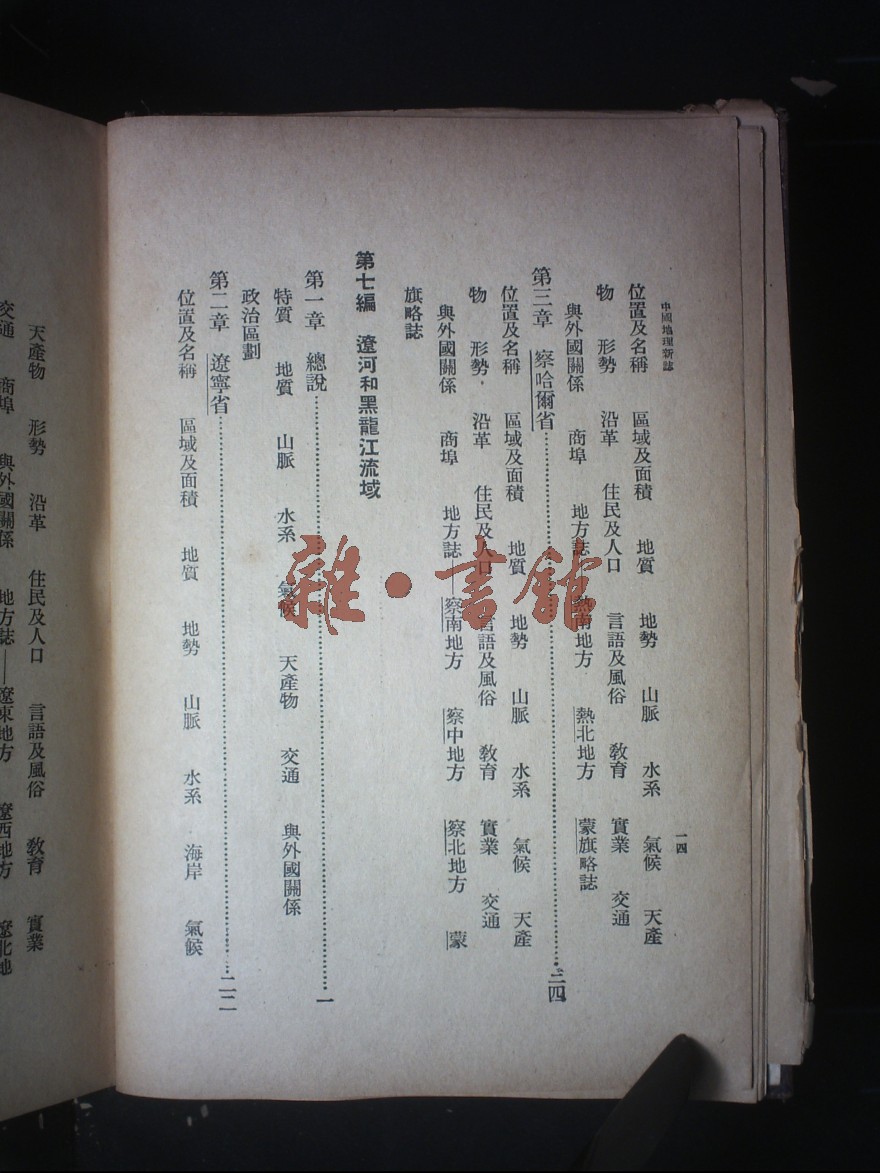 中國地理新誌 一四
位置及名稱 區域及面積 地質 地勢 山脈 水系 氣候 天產
物 形勢 沿革 住民及人口 言語及風俗 教育 實業 交通
與外國關係 商埠 地方誌——熱南地方 熱北地方 蒙旗略誌
第三章 察哈爾省……三四
位置及名稱 區域及面積 地質 地勢 山脈 水系 氣候 天產
物 形勢 沿革 住民及人口 言語及風俗 教育 實業 交通
與外國關係 商埠 地方誌——察南地方 察中地方 察北地方 蒙
旗略誌
第七編 遼河和黑龍江流域
第一章 總說……一
特質 地質 山脈 水系 氣候 天產物 交通 與外國關係
政治區劃
第二章 遼寧省……二二
位置及名稱 區域及面積 地質 地勢 山脈 水系 海岸 氣候
天產物 形勢 沿革 住民及人口 言語及風俗 教育 實業
交通 商埠 與外國關係 地方誌——遼東地方 遼西地方 遼北地
雜·書館